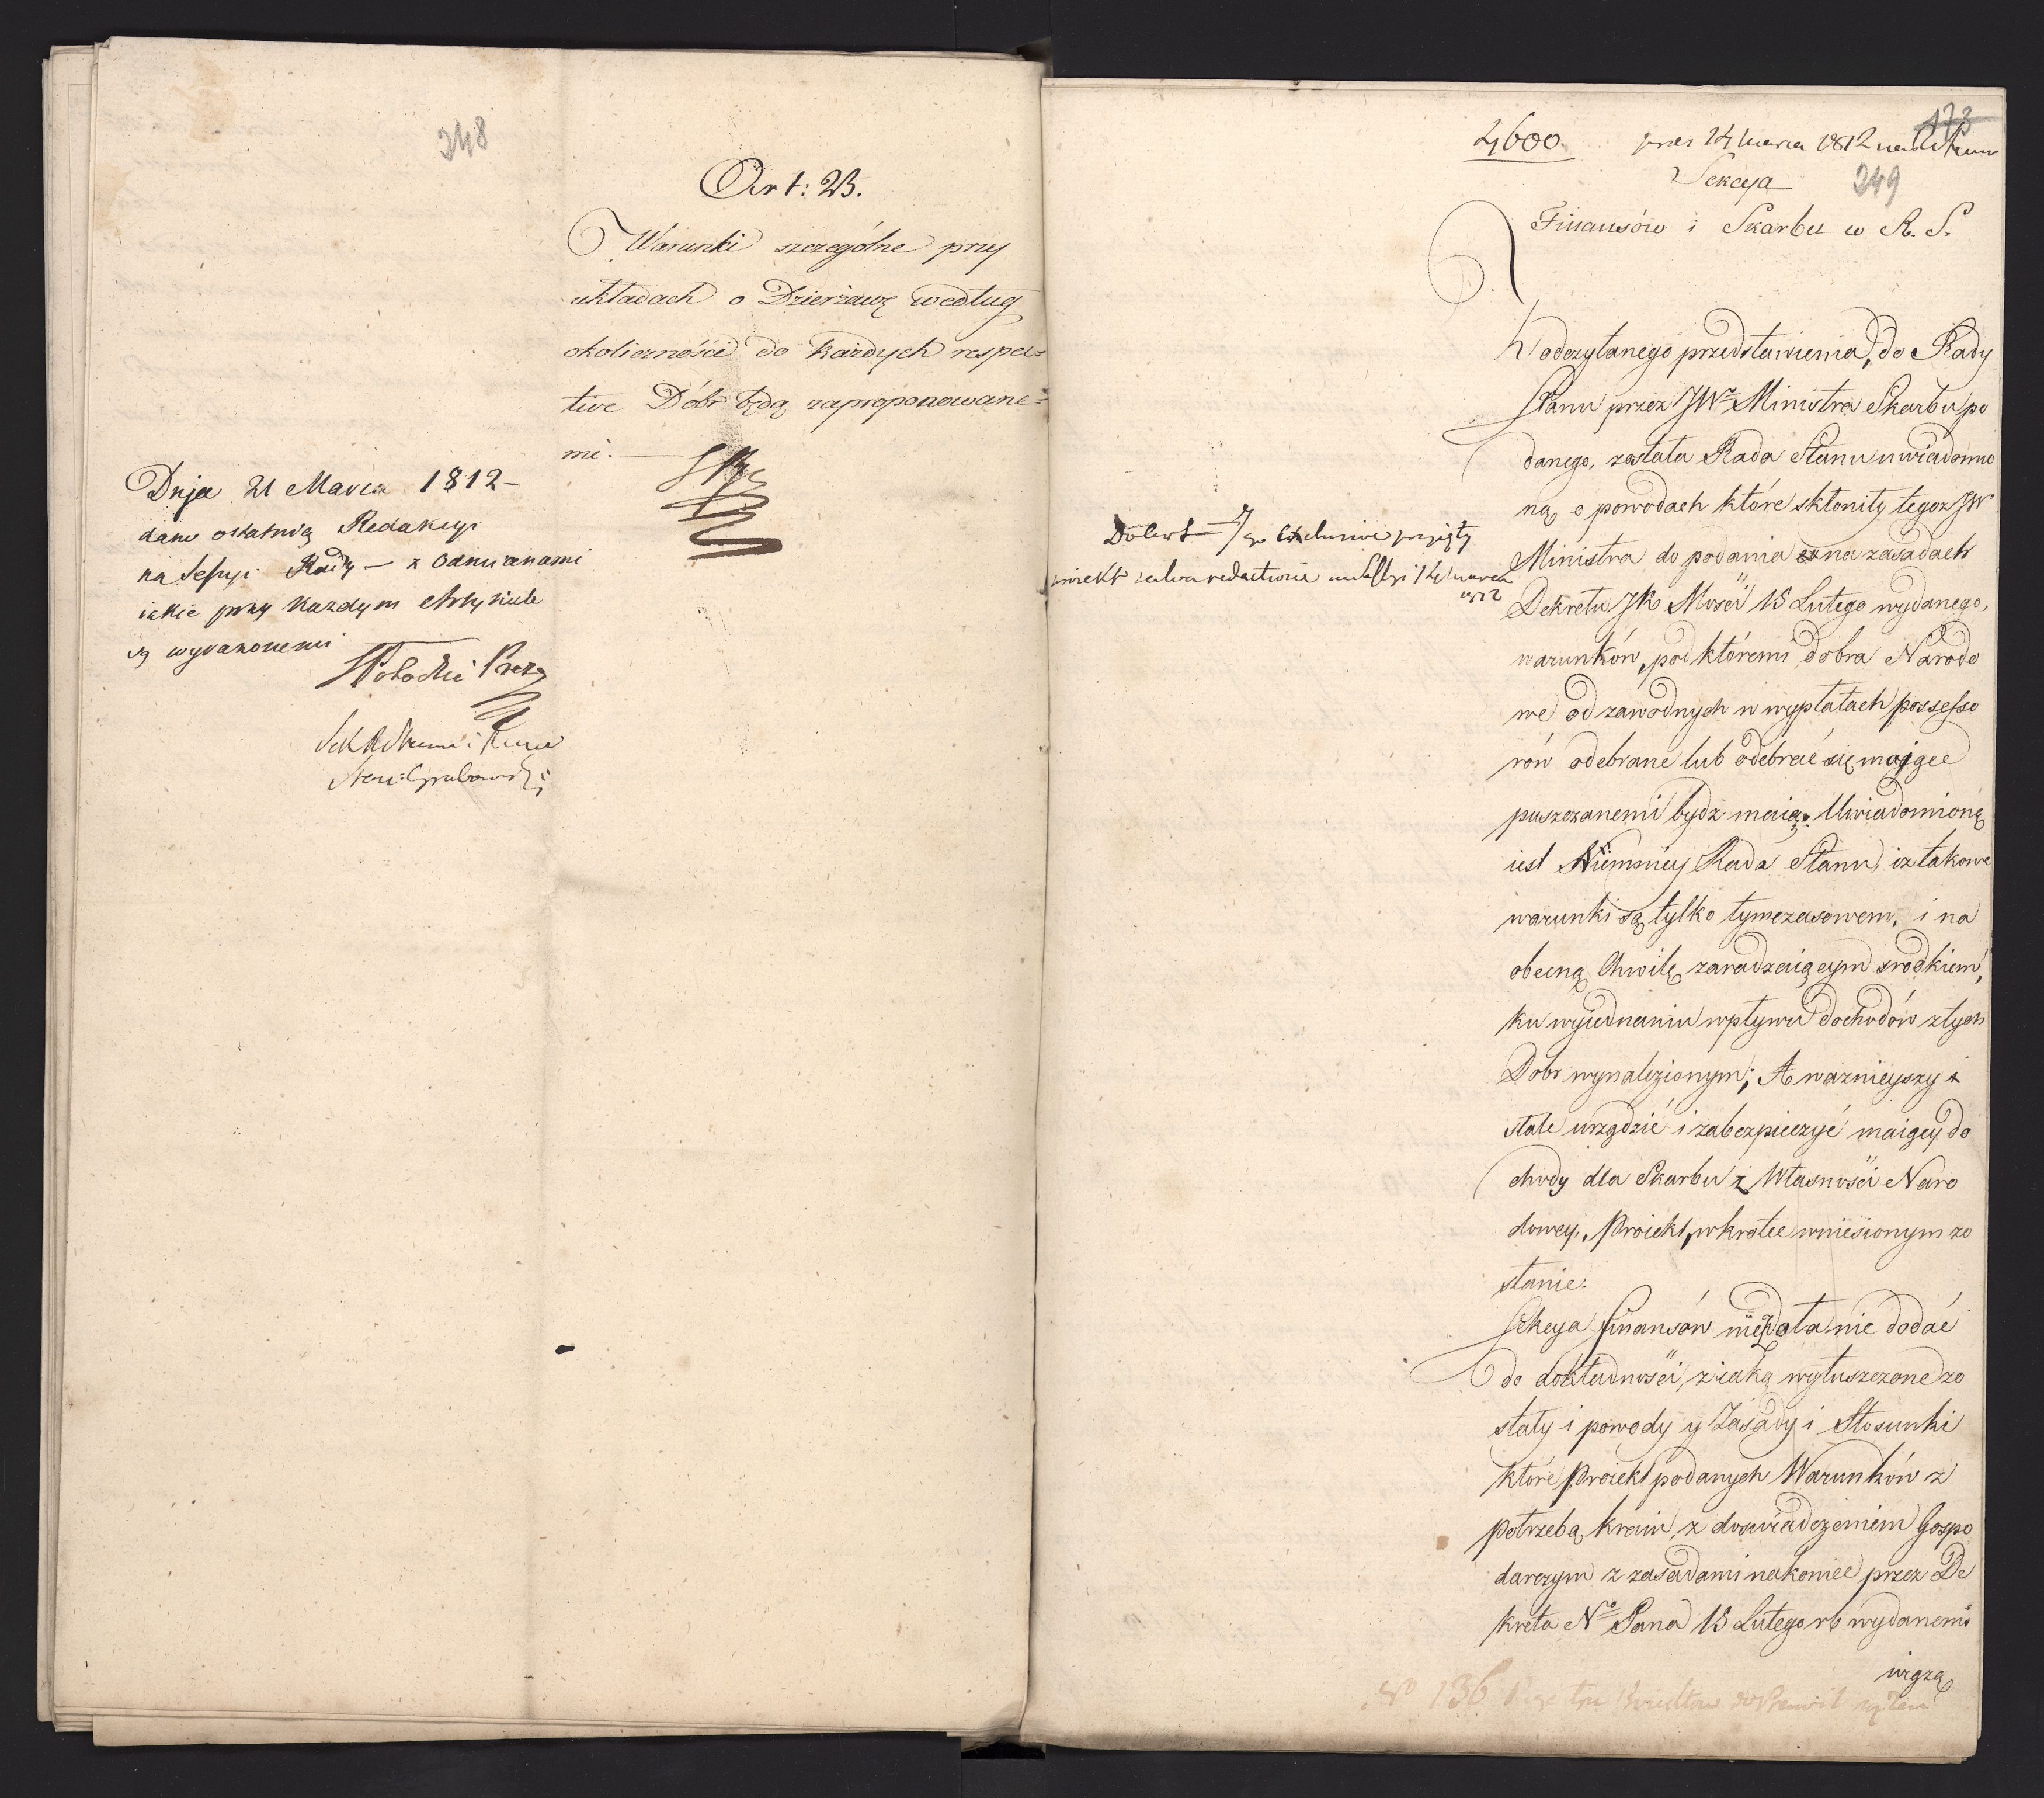 248
Art: 23.
Warunki szczególne przy
układach o Dzierżawę według
okoliczności do każdych respec=
tive Dóbr będą zaproponowane=
mi.
Dnia 21 Marca 1812 –
dano ostatnią Redakcyi
na Sessyi Rady – z odmianami
iakie przy każdym Artykule
są wyrażonemi
Potocki Prez
Grabowski
173
4600. 14 marca 1812 na
Sekcya 249
Finansów i Skarbu w R. S.
Z odczytanego przedstawienia, do Rady
Stanu przez JWo Ministra Skarbu po
danego, została Rada Stanu uwiadomio
ną o powodach które skłoniły tegoż JW
Ministra do podania na zasadach
Dekretu JK Mości 15 Lutego wydanego,
warunków, pod któremi dobra Narodo
we od zawodnych w wypłatach possesso
rów odebrane lub odebrać się maiące
puszczanemi bydz maią. Uwiadomioną
iest Niemniey Rada Stanu, iz takowe
warunki są tylko tymczasowem, i na
obecną Chwilę zaradzaiącym srodkiem,
ku wyiednaniu wpływu dochodów z tych
Dobr wynalezionym; A ważnieyszy i
stale urządzić i zabezpieczyć maiący do
chody dla Skarbu z Własności Naro
dowey, Proiekt, wkrotce wniesionym zo
stanie.
Sekcya Finansów niezdoła nic dodać
do dokładności, z iaką wyłuszczone zo
stały i powody y Zasady i Stosunki
które Proiekt podanych Warunków z
potrzebą kraiu, z doswiadczeniem Gospo
darczym z zasadami nakoniec przez De
kreta No Pana 15 Lutego rb wydanemi
wiążą
proiekt salva redactione na Sessyi 14 marca
1812
No 136